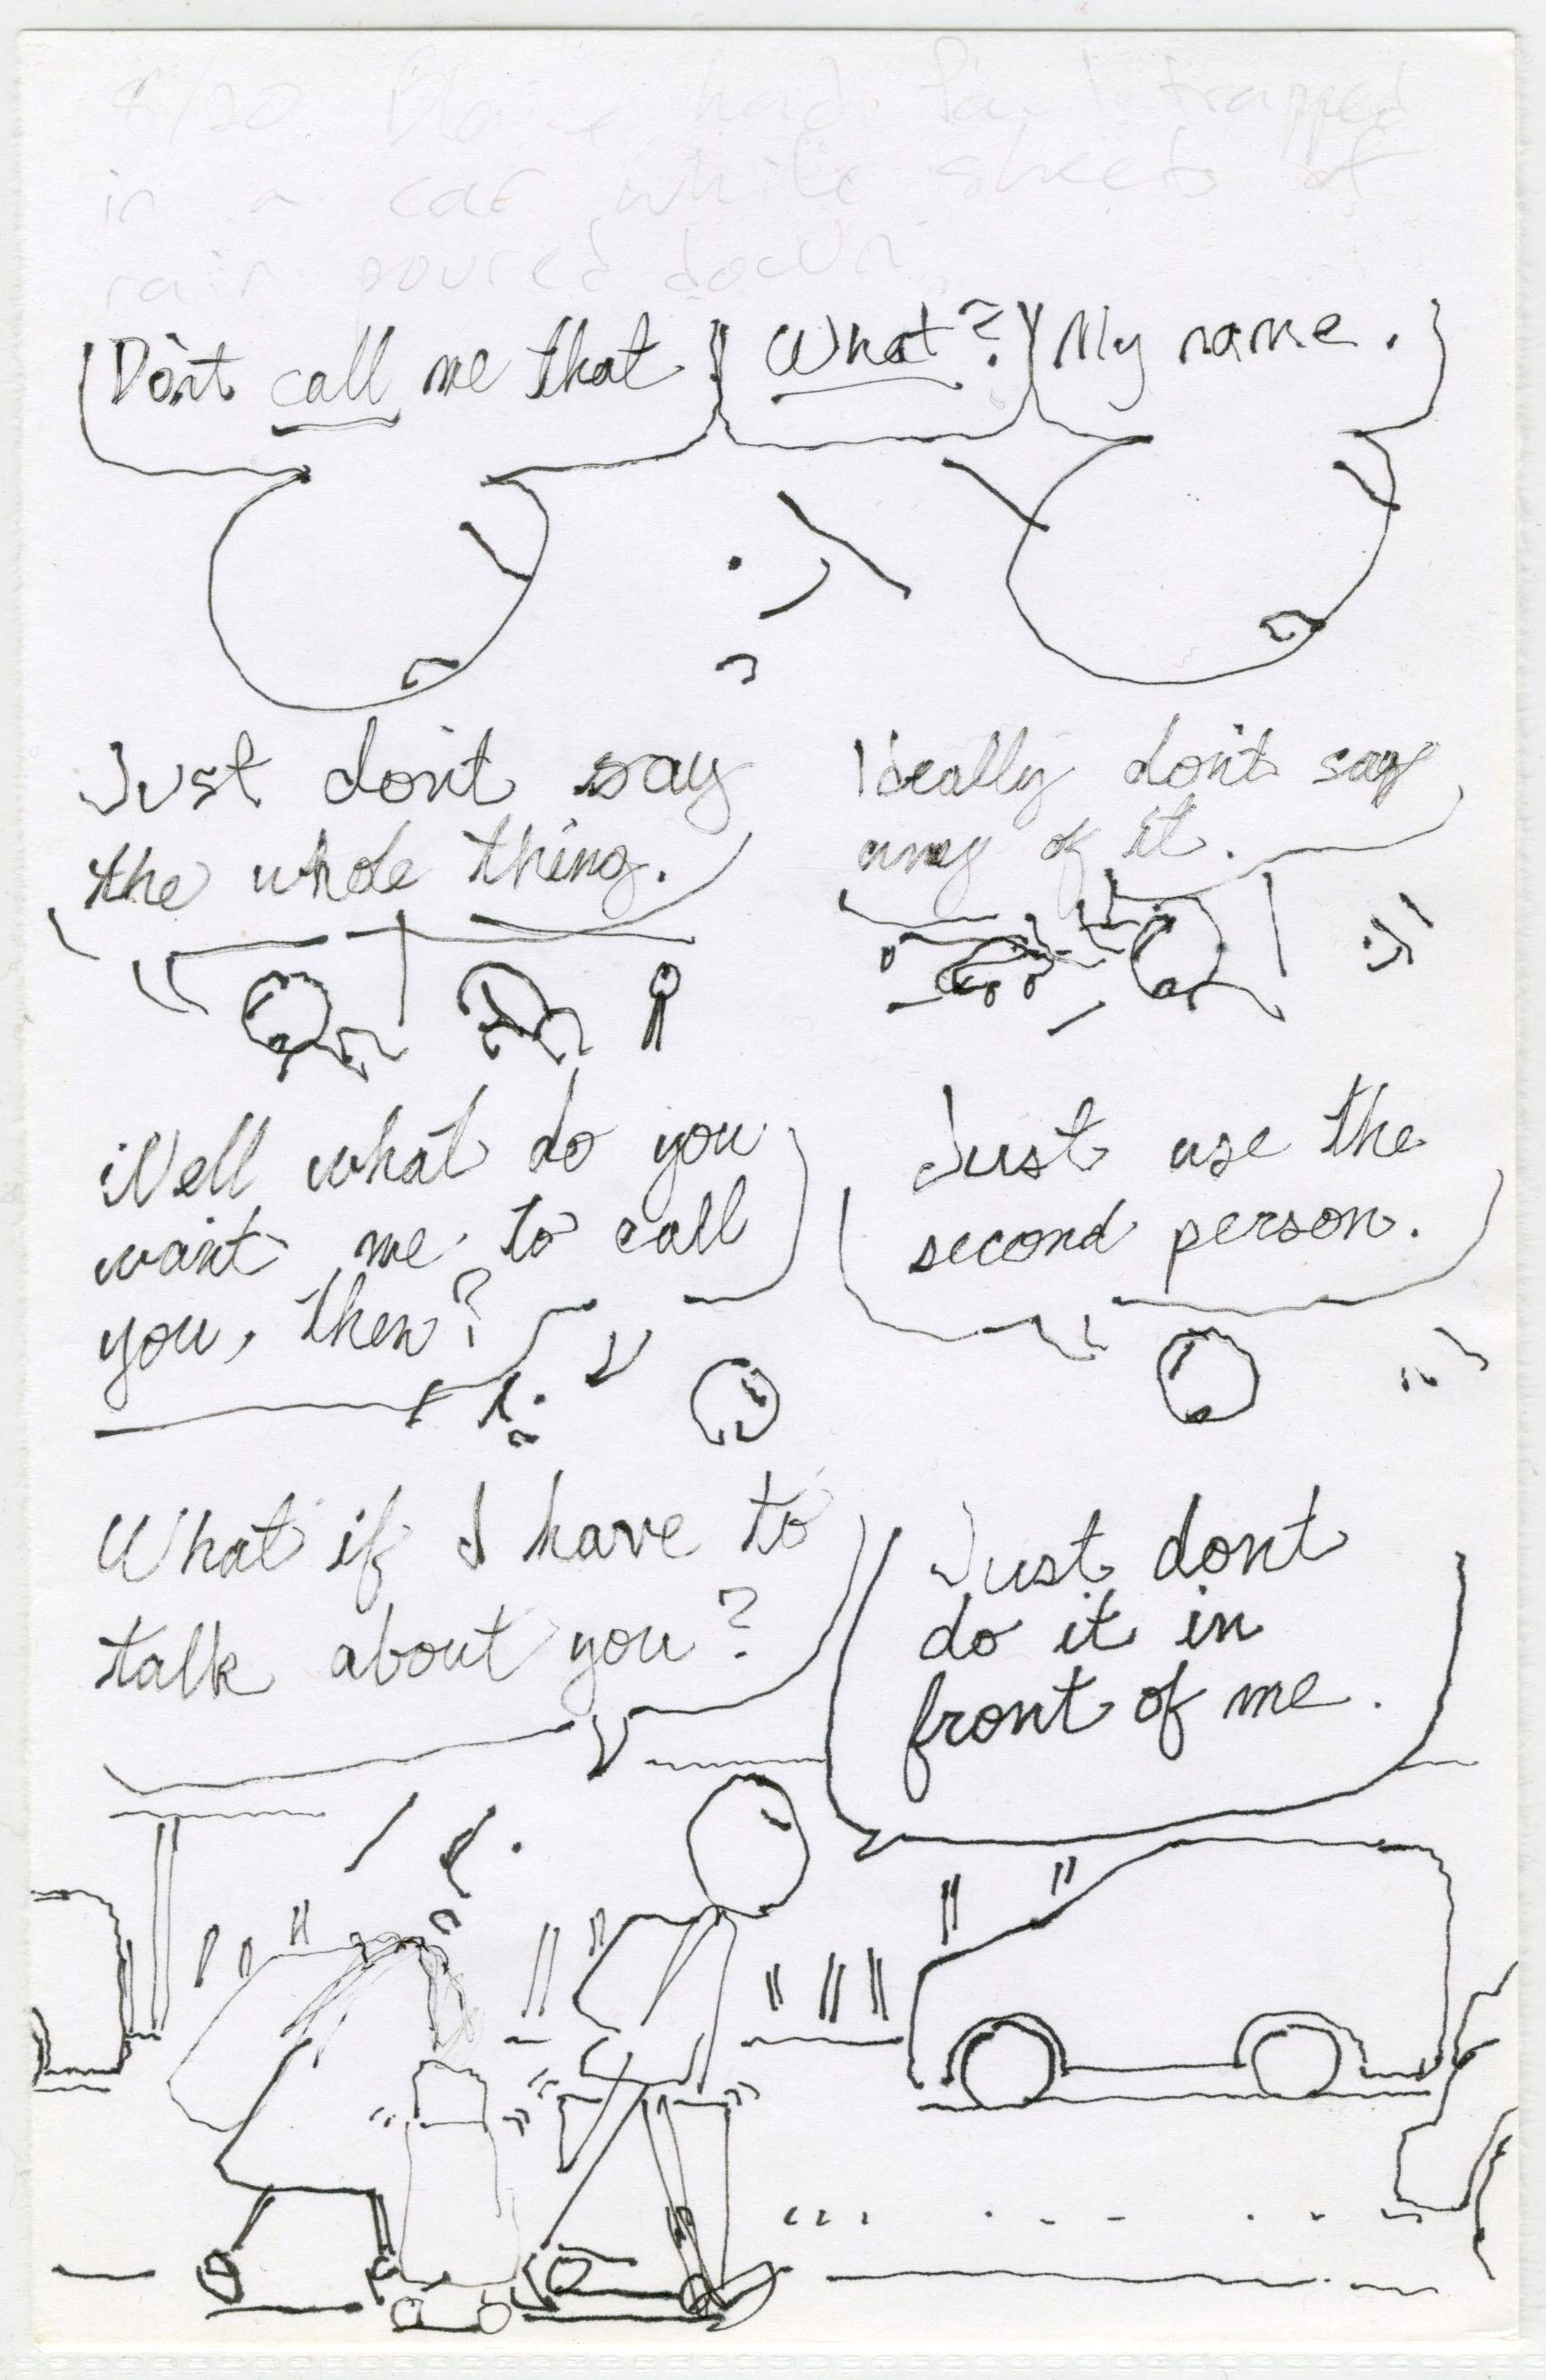 had trapped
in a car while sheets of
rain poured down
Don't call me that
What?
My name.
Just don't say
the whole thing.
Ideally don't say
any of it.
Well what do you
want me to call
you, then?
Just use the
second person.
What if I have to
talk about you?
Just dont
do it in
front of me.